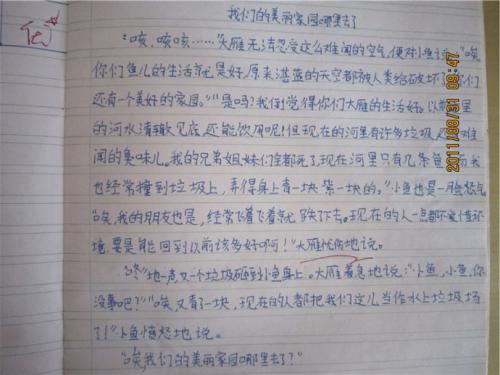 我们的美丽家园哪里去了
“咳,咳咳……”大雁无法忍受这么难闻的空气,便对小鱼说:“唉,
你们鱼儿的生活就是好,原来湛蓝的天空都被人类给破坏了,你们
还有一个美好的家园。”“是吗?我倒觉得你们大雁的生活好。以前这里
的河水清辙见底,还能饮用呢!但现在的河里有许多垃圾,还有难
闻的臭味儿。我的兄弟姐妹们全都死了,现在河里只有几条鱼,而我
也经常撞到垃圾上,弄得身上青一块紫一块的。”小鱼也是一脸怒气
“唉,我的朋友也是,经常飞着飞着就跌下去。现在的人一点都不爱惜环
境,要是能回到以前该多好啊!”大雁忧伤地说。
“咚”地一声,又一个垃圾砸到小鱼身上。大雁着急地说:“小鱼,小鱼,你
没事吧?”“唉,又青了一块,现在的人都把我们这儿当作水上垃圾场
了!”小鱼愤怒地说。
“唉,我们的美丽家园哪里去了?”
2011/08/31 09:47